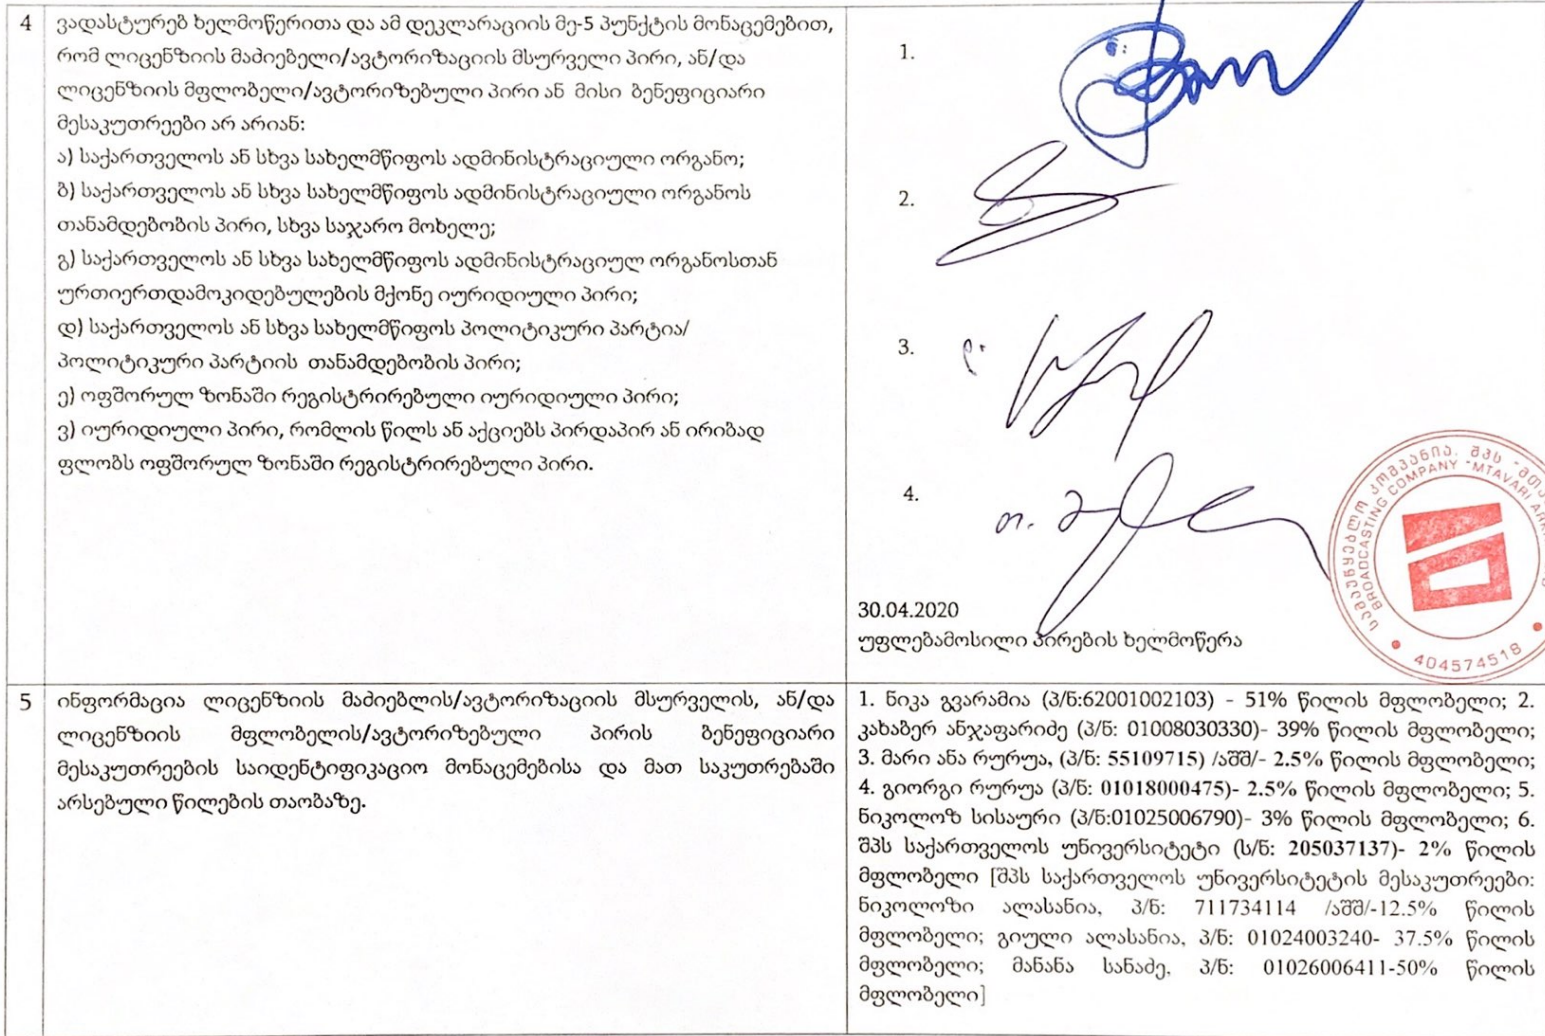 4
ვადასტურებ ხელმოწერითა და ამ დეკლარაციის მე-5 პუნქტის მონაცემებით,
რომ ლიცენზიის მაძიებელი/ავტორიზაციის მსურველი პირი, ან/და
ლიცენზიის მფლობელი/ავტორიზებული პირი ან მისი ბენეფიციარი
მესაკუთრეები არ არიან:
ა) საქართველოს ან სხვა სახელმწიფოს ადმინისტრაციული ორგანო;
ბ) საქართველოს ან სხვა სახელმწიფოს ადმინისტრაციული ორგანოს
თანამდებობის პირი, სხვა საჯარო მოხელე;
გ) საქართველოს ან სხვა სახელმწიფოს ადმინისტრაციულ ორგანოსთან
ურთიერთდამოკიდებულების მქონე იურიდიული პირი;
დ) საქართველოს ან სხვა სახელმწიფოს პოლიტიკური პარტია/
პოლიტიკური პარტიის თანამდებობის პირი;
ე) ოფშორულ ზონაში რეგისტრირებული იურიდიული პირი;
ვ) იურიდიული პირი, რომლის წილს ან აქციებს პირდაპირ ან ირიბად
ფლობს ოფშორულ ზონაში რეგისტრირებული პირი.
1.
2.
3.
4.
30.04.2020
უფლებამოსილი პირების ხელმოწერა
სამაუწყებლო კომპანია, შპს "მთა
BROADCASTING COMPANY "MTAVARI ARKH
404574518
5
ინფორმაცია ლიცენზიის მაძიებლის/ავტორიზაციის მსურველის, ან/და
ლიცენზიის მფლობელის/ავტორიზებული პირის ბენეფიციარი
მესაკუთრეების საიდენტიფიკაციო მონაცემებისა და მათ საკუთრებაში
არსებული წილების თაობაზე.
1. ნიკა გვარამია (პ/ნ:62001002103) - 51% წილის მფლობელი; 2.
კახაბერ ანჯაფარიძე (პ/ნ: 01008030330)- 39% წილის მფლობელი;
3. მარი ანა რურუა, (პ/ნ: 55109715) /აშშ/- 2.5% წილის მფლობელი;
4. გიორგი რურუა (პ/ნ: 01018000475)- 2.5% წილის მფლობელი; 5.
ნიკოლოზ სისაური (პ/ნ:01025006790)- 3% წილის მფლობელი; 6.
შპს საქართველოს უნივერსიტეტი (ს/ნ: 205037137)- 2% წილის
მფლობელი [შპს საქართველოს უნივერსიტეტის მესაკუთრეები:
ნიკოლოზი ალასანია, პ/ნ: 711734114 /აშშ/-12.5% წილის
მფლობელი; გიული ალასანია, პ/ნ: 01024003240- 37.5% წილის
მფლობელი; მანანა სანაძე, პ/ნ: 01026006411-50% წილის
მფლობელი]